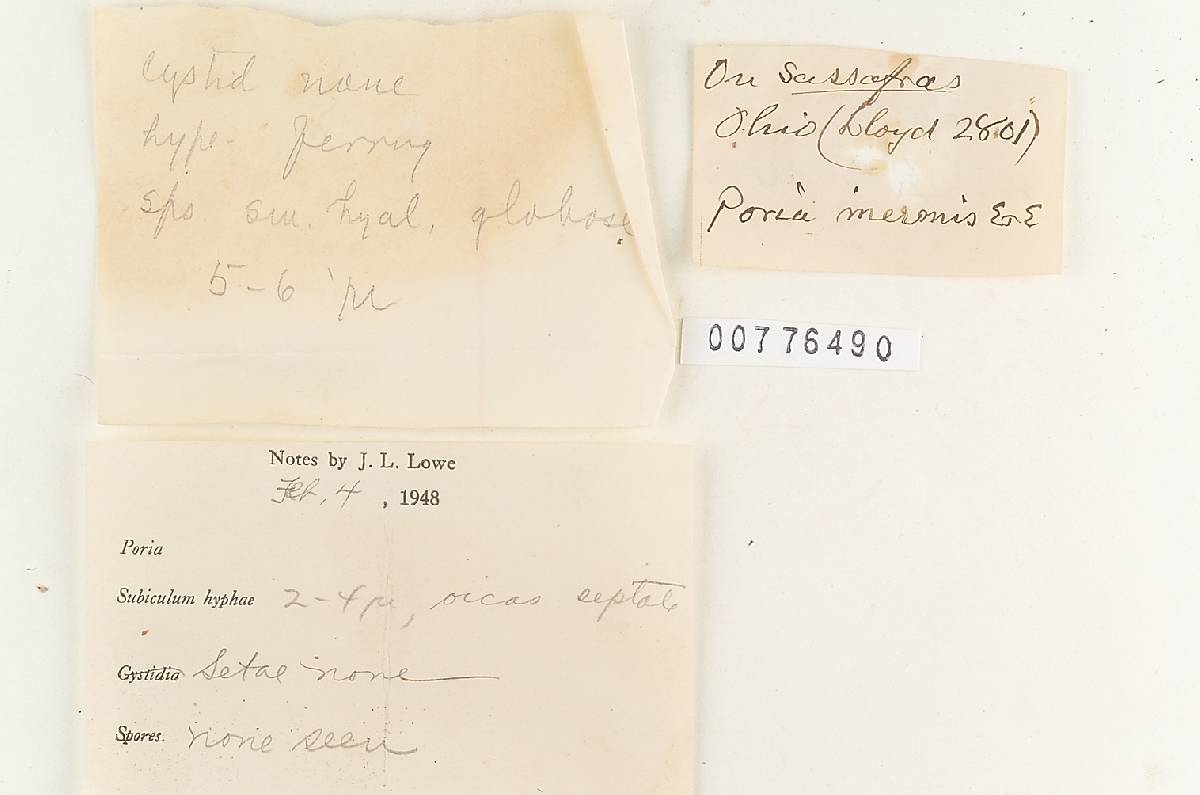 Cystid none
hype- ferrug
sps sm. hyal. globose
5-6 µ
On Sassafras
Ohio (Lloyd 2801)
Poria inermis E&E
00776490
Notes by J. L. Lowe
Feb. 4, 1948
Poria
Subiculum hyphae 2-4µ, occas septate
Cystidia Setae none
Spores none seen